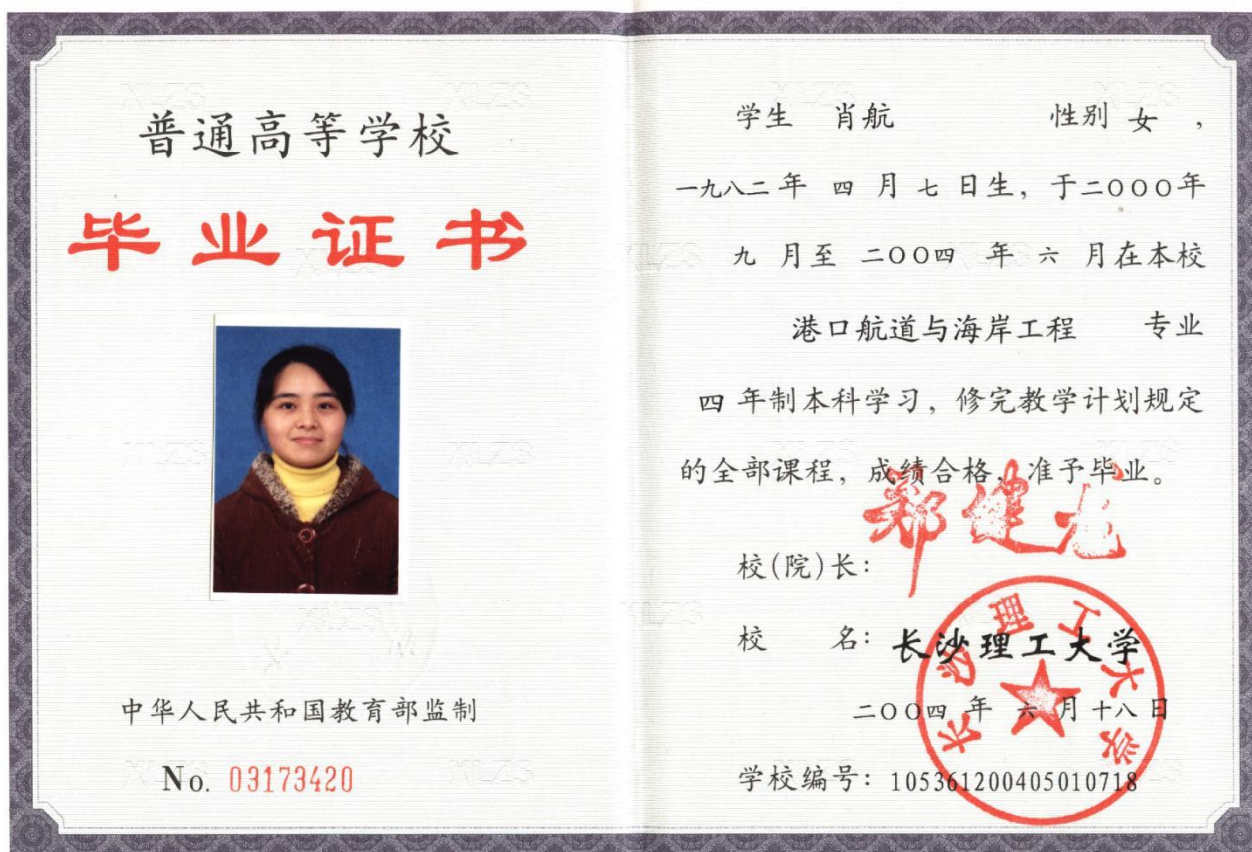 普通高等学校
毕业证书
中华人民共和国教育部监制
No. 03173420
学生 肖航 性别 女 ，
一九八二年 四 月 七 日生，于二〇〇〇年
九 月至 二〇〇四 年 六 月在本校
港口航道与海岸工程 专业
四 年制本科学习，修完教学计划规定
的全部课程，成绩合格，准予毕业。
校(院)长： 郑健龙
校 名：长沙理工大学
二〇〇四 年 六 月十八日
学校编号：105361200405010718
长沙理工大学
XLZS